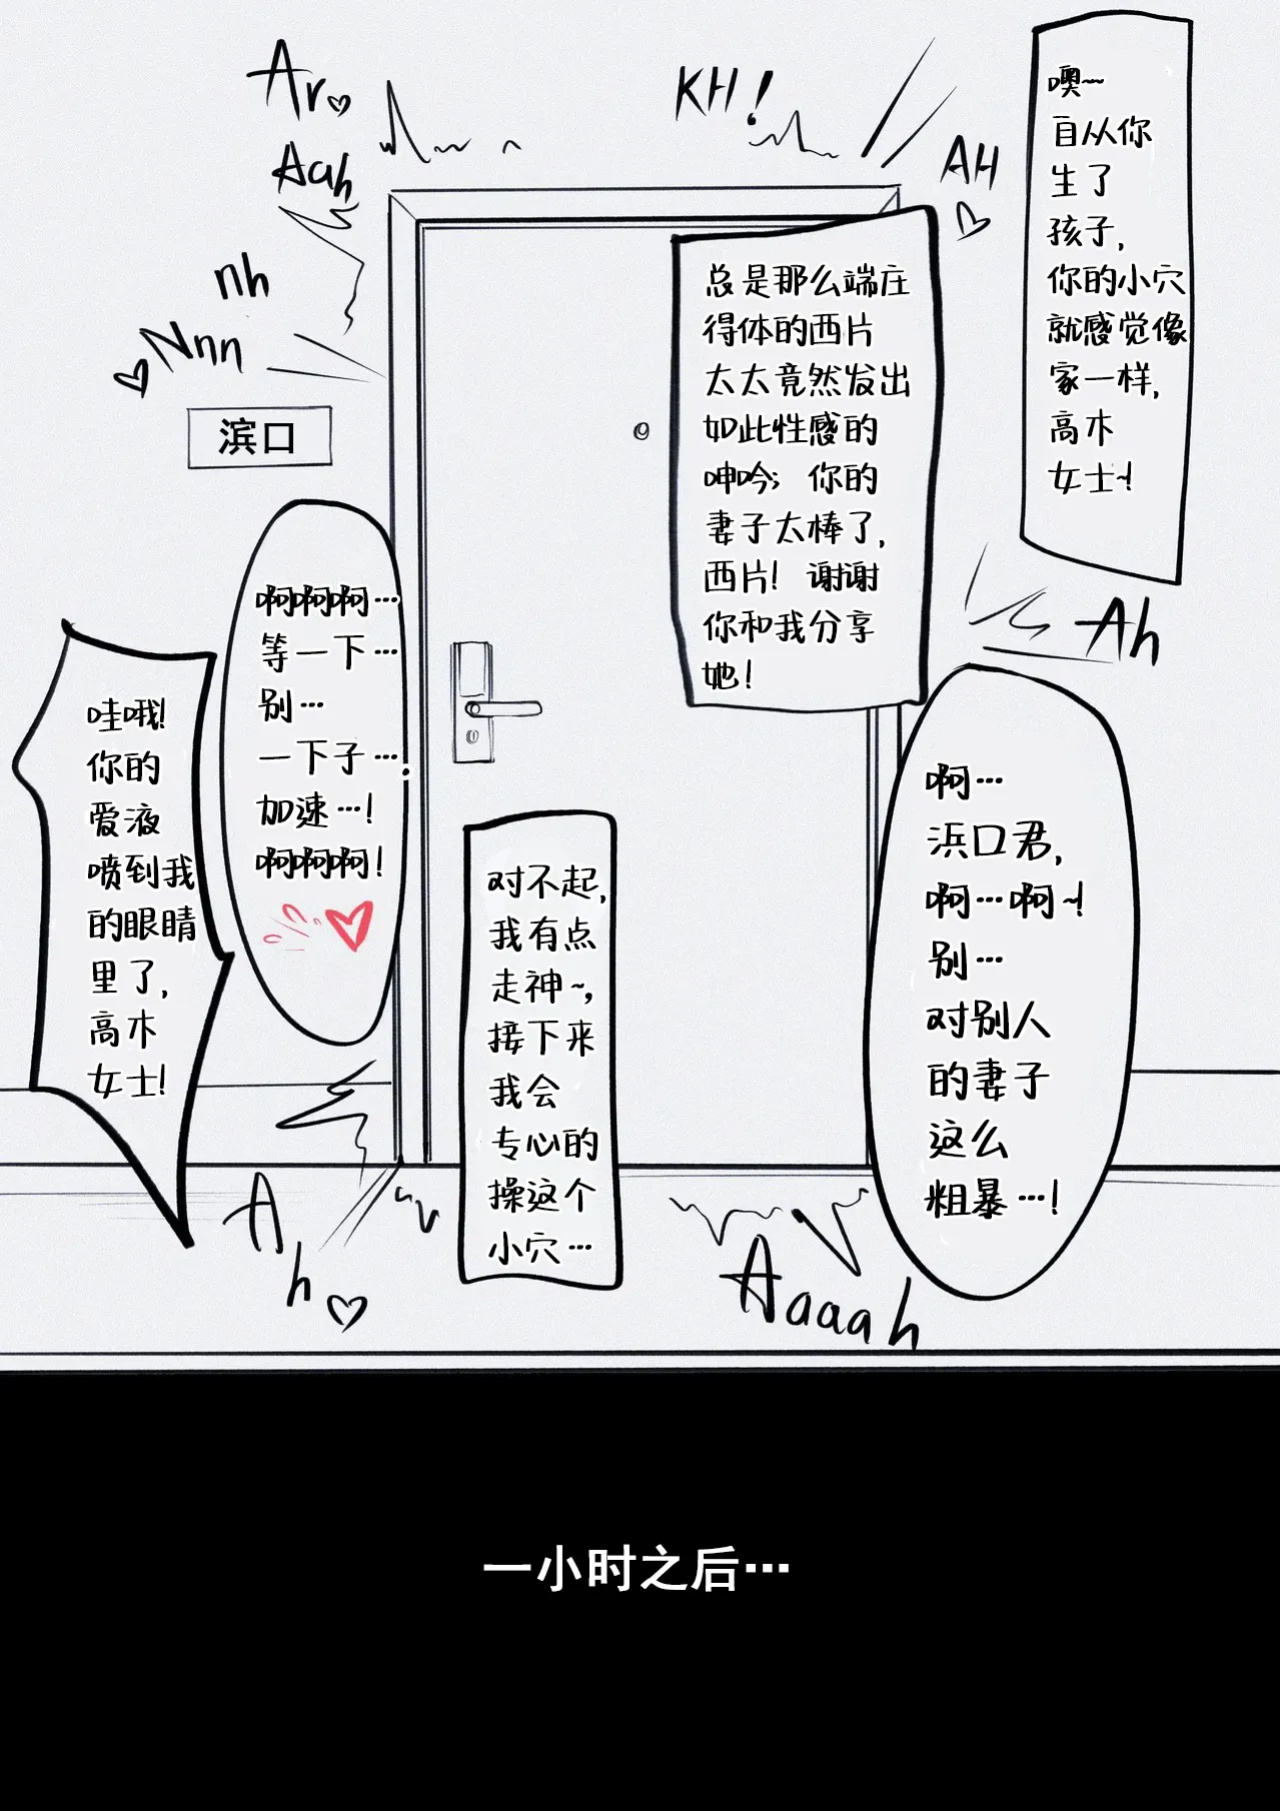 噢~
自从你
生了
孩子，
你的小穴
就感觉像
家一样，
高木
女士~!
Ar
Aah
nh
Nnn
KH!
AH
滨口
总是那么端庄
得体的西片
太太竟然发出
如此性感的
呻吟；你的
妻子太棒了，
西片！谢谢
你和我分享
她！
Ah
啊…
浜口君，
啊…啊~!
别…
对别人
的妻子
这么
粗暴…!
啊啊啊…
等一下…
别…
一下子…
加速…!
啊啊啊!
对不起，
我有点
走神~，
接下来
我会
专心的
操这个
小穴…
哇哦!
你的
爱液
喷到我
的眼睛
里了，
高木
女士!
Ah
Aaaah
一小时之后…